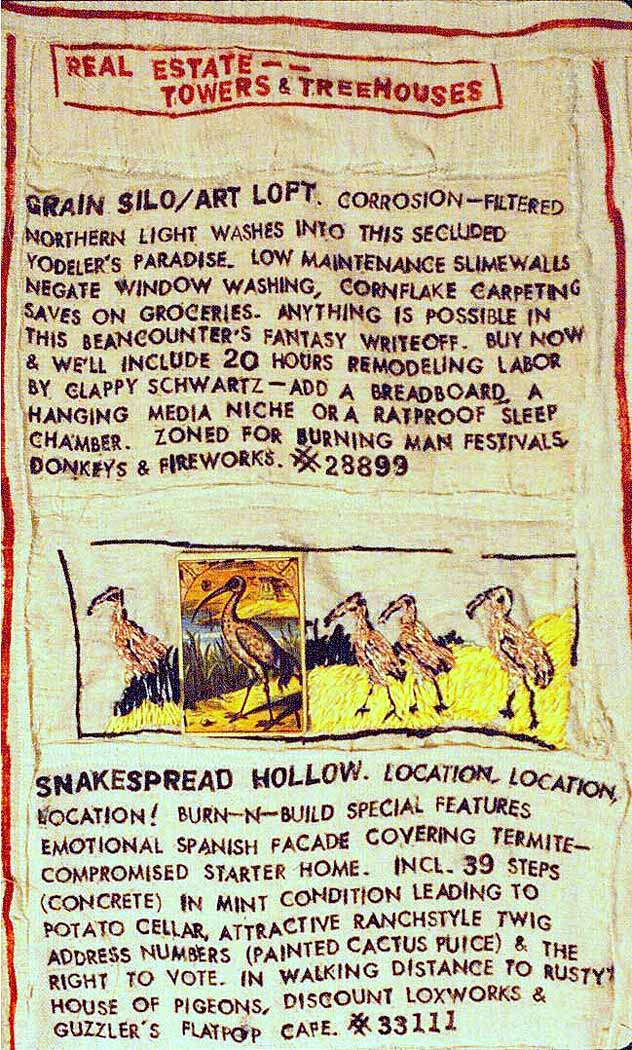 REAL ESTATE--
TOWERS & TREEHOUSES
GRAIN SILO/ART LOFT. CORROSION-FILTERED
NORTHERN LIGHT WASHES INTO THIS SECLUDED
YODELER'S PARADISE. LOW MAINTENANCE SLIMEWALLS
NEGATE WINDOW WASHING, CORNFLAKE CARPETING
SAVES ON GROCERIES. ANYTHING IS POSSIBLE IN
THIS BEANCOUNTER'S FANTASY WRITEOFF. BUY NOW
& WE'LL INCLUDE 20 HOURS REMODELING LABOR
BY CLAPPY SCHWARTZ-ADD A BREADBOARD, A
HANGING MEDIA NICHE OR A RATPROOF SLEEP
CHAMBER. ZONED FOR BURNING MAN FESTIVALS,
DONKEYS & FIREWORKS. 28899
SNAKESPREAD HOLLOW. LOCATION, LOCATION,
LOCATION! BURN-N-BUILD SPECIAL FEATURES
EMOTIONAL SPANISH FACADE COVERING TERMITE-
COMPROMISED STARTER HOME. INCL. 39 STEPS
(CONCRETE) IN MINT CONDITION LEADING TO
POTATO CELLAR, ATTRACTIVE RANCHSTYLE TWIG
ADDRESS NUMBERS (PAINTED CACTUS PUICE) & THE
RIGHT TO VOTE. IN WALKING DISTANCE TO RUSTY'
HOUSE OF PIGEONS, DISCOUNT LOXWORKS &
GUZZLER'S FLATPOP CAFE. 33111